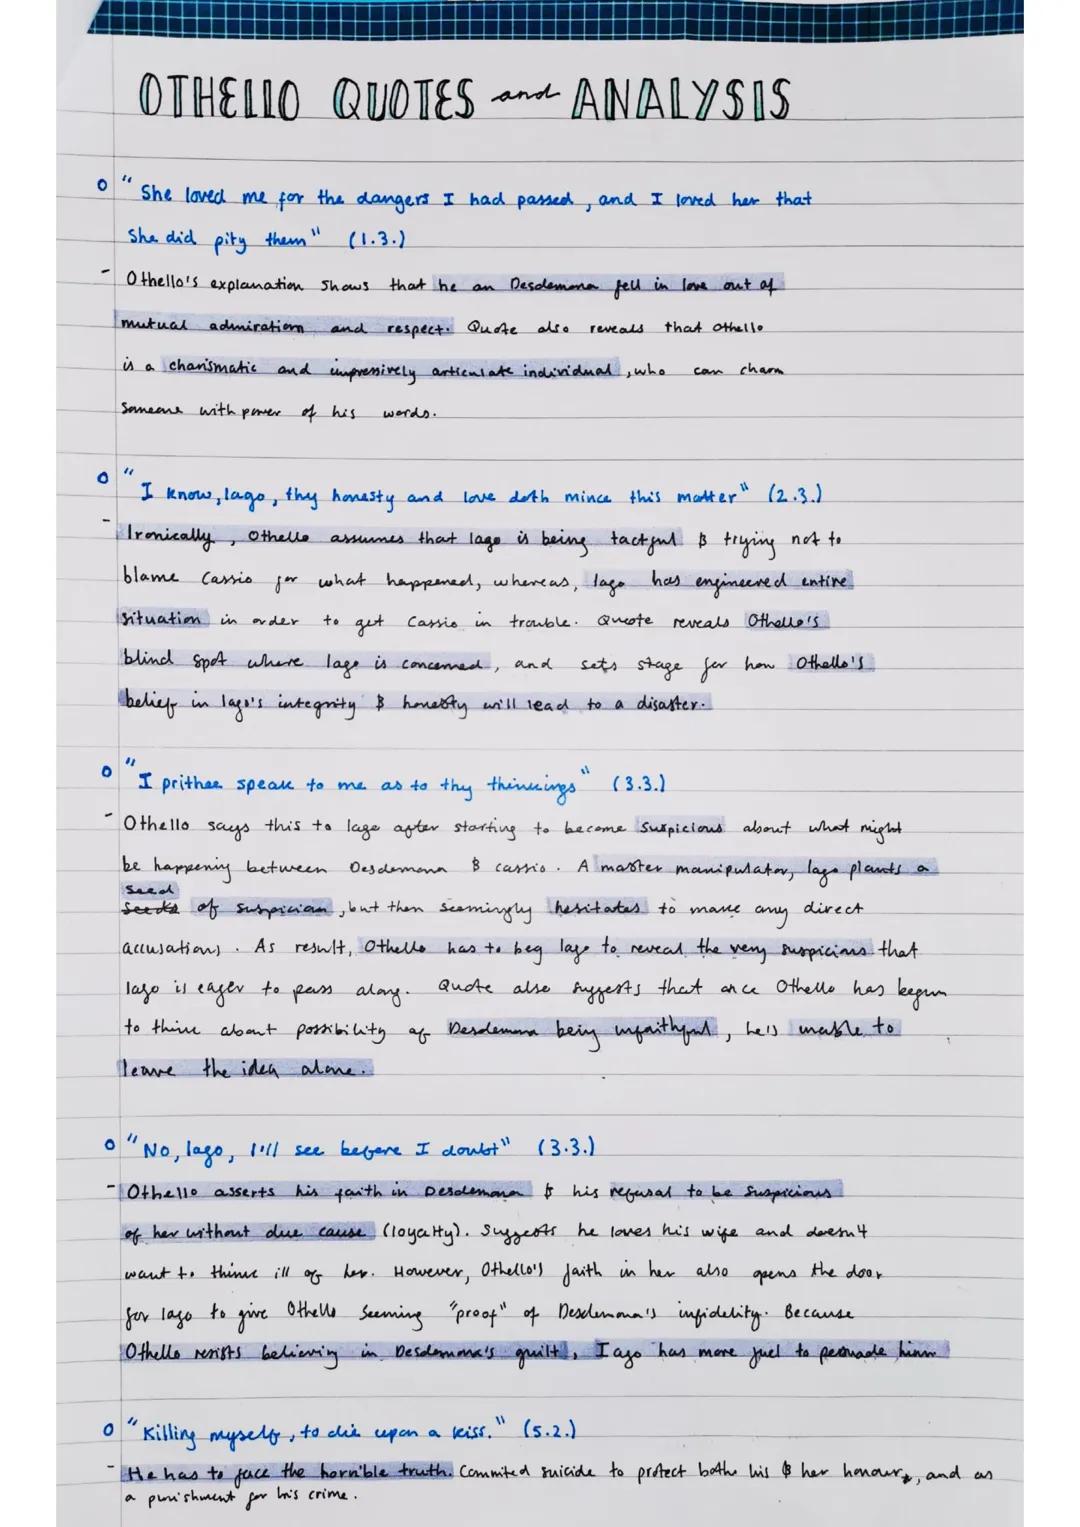 OTHELLO QUOTES and ANALYSIS
"She loved me for the dangers I had passed, and I loved her that
She did pity them" (1.3.)
- Othello's explanation shows that he an Desdemona fell in love out of
mutual admiration and respect. Quote also reveals that Othello
is a charismatic and impressively articulate individual, who can charm
Someone with power of his words.
"I know, Iago, thy honesty and love doth mince this matter" (2.3.)
- Ironically, Othello assumes that Iago is being tactful & trying not to
blame Cassio for what happened, whereas, Iago has engineered entire
situation in order to get Cassio in trouble. Quote reveals Othello's
blind spot where Iago is concerned, and sets stage for how Othello's
belief in Iago's integrity & honesty will lead to a disaster.
"I prithee speak to me as to thy thinkings" (3.3.)
- Othello says this to Iago after starting to become suspicious about what might
be happening between Desdemona & Cassio. A master manipulator, Iago plants a
seed
seeds of suspicion, but then seemingly hesitates to make any direct
accusations. As result, Othello has to beg Iago to reveal the very suspicions that
Iago is eager to pass along. Quote also suggests that once Othello has begun
to think about possibility of Desdemona being unfaithful, he's unable to
leave the idea alone.
"No, Iago, I'll see before I doubt" (3.3.)
- Othello asserts his faith in Desdemona & his refusal to be suspicious
of her without due cause (loyalty). Suggests he loves his wife and doesn't
want to think ill of her. However, Othello's faith in her also opens the door
for Iago to give Othello seeming "proof" of Desdemona's infidelity. Because
Othello resists believing in Desdemona's guilt, Iago has more fuel to persuade him
"Killing myself, to die upon a kiss." (5.2.)
- He has to face the horrible truth. Commited suicide to protect bothe his & her honour, and as
a punishment for his crime.